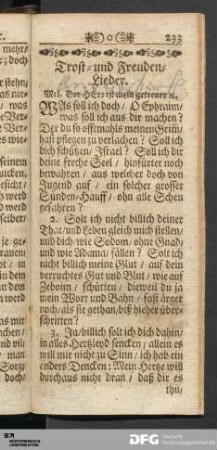 233
Trost- und Freuden-
Lieder.
Mel. Der HErr ist mein getreuer ꝛc.
WAs soll ich doch / O Ephraim /
was soll ich aus dir machen?
Der du so offtmahls meinen Grim̃ /
hast pflegen zu verlachen? Soll ich
dich schützen / Israel? Soll ich dir
deine freche Seel / hinfürter noch
bewahren / aus welcher doch von
Jugend auf / ein solcher grosser
Sünden-Hauff / ohn alle Scheu
gefahren?
2. Solt ich nicht billich deiner
That / und Leben gleich mich stellen /
und dich / wie Sodom / ohne Gnad /
und wie Adama / fällen? Solt ich
nicht billich meine Glut / auf dein
verruchtes Gut und Blut / wie auf
Zeboim / schütten / dieweil du ja
mein Wort und Bahn / fast ärger
noch / als sie gethan / bist hieher über-
schritten?
3. Ja / billich solt ich dich dahin /
in alles Hertzleyd sencken / allein es
will mir nicht zu Sinn / ich hab ein
anders Dencken: Mein Hertze will
durchaus nicht dran / daß dir es
thu /
DFG
Deutsche
Forschungsgemeinschaft